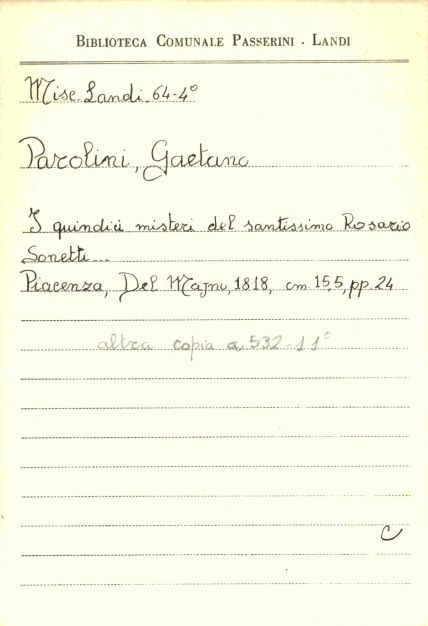 BIBLIOTECA COMUNALE PASSERINI - LANDI
Misc. Landi. 64-4°
Parolini, Gaetano
I quindici misteri del santissimo Rosario
Sonetti...
Piacenza, Del Majno, 1818, cm 15,5, pp. 24
altra copia a 532-11°
C